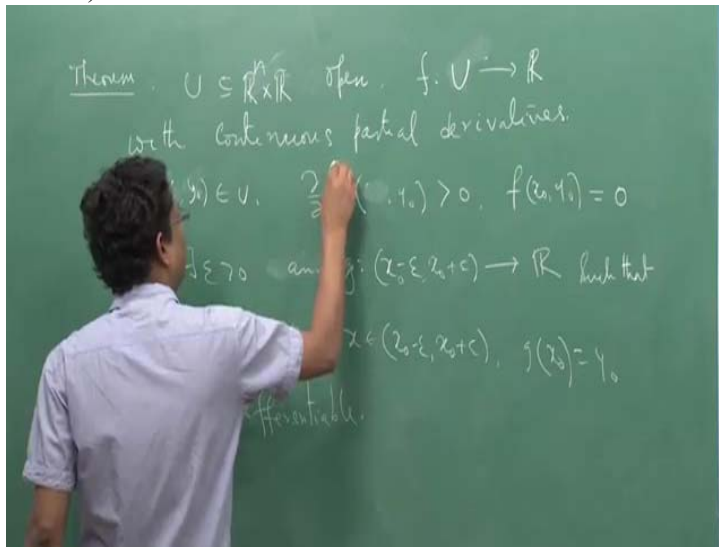 Theorem. U ⊆ ℝⁿ×ℝ open. f: U → ℝ
with continuous partial derivatives.
y₀) ∈ U. (x₀, y₀) > 0, f(x₀, y₀) = 0
∃ ε > 0 and g: (x₀-ε, x₀+ε) → ℝ such that
x ∈ (x₀-ε, x₀+ε), g(x₀) = y₀
differentiable.